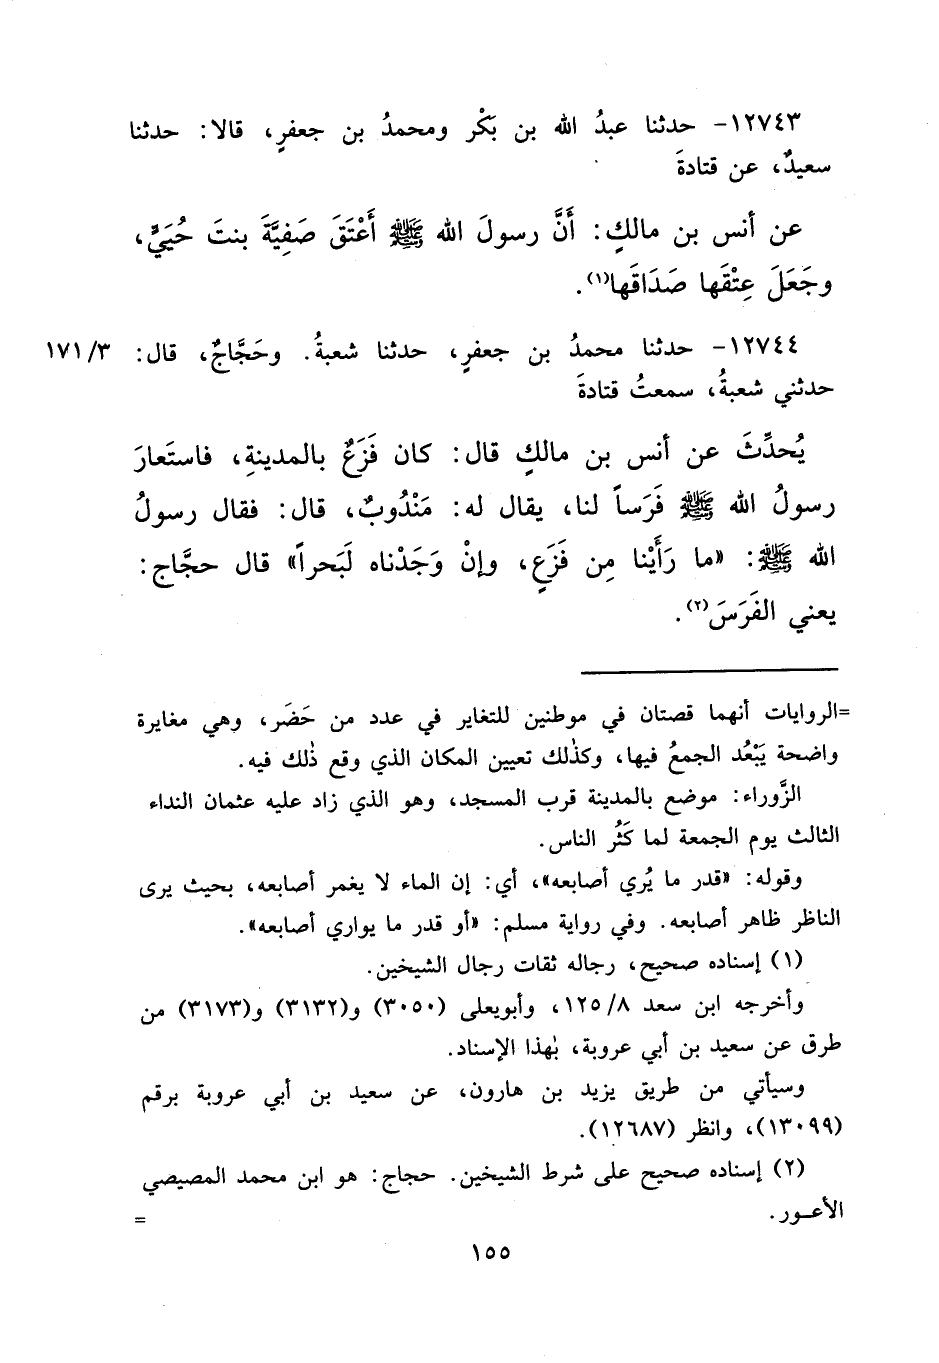 ١٢٧٤٣- حدثنا عبدُ الله بن بَكْر ومحمدُ بن جعفرٍ، قالا: حدثنا
سعيدٌ، عن قتادةَ
عن أنس بن مالكٍ: أَنَّ رسولَ الله ﷺ أَعْتَقَ صَفِيَّةَ بنتَ حُيَيٍّ،
وجَعَلَ عِتْقَها صَدَاقَها(١).
١٢٧٤٤- حدثنا محمدُ بن جعفرٍ، حدثنا شعبةُ. وحَجَّاجٌ، قال: ١٧١/٣
حدثني شعبةُ، سمعتُ قتادةَ
يُحدِّثَ عن أنس بن مالكٍ قال: كان فَزَعٌ بالمدينةِ، فاستَعارَ
رسولُ الله ﷺ فَرَساً لنا، يقال له: مَنْدُوبٌ، قال: فقال رسولُ
الله ﷺ: «ما رَأَيْنا مِن فَزَعٍ، وإنْ وَجَدْناه لَبَحراً» قال حجَّاج:
يعني الفَرَسَ(٢).
=الروايات أنهما قصتان في موطنين للتغاير في عدد من حَضَر، وهي مغايرة
واضحة يَبْعُد الجمعُ فيها، وكذٰلك تعيين المكان الذي وقع ذٰلك فيه.
الزَّوراء: موضع بالمدينة قرب المسجد، وهو الذي زاد عليه عثمان النداء
الثالث يوم الجمعة لما كَثُر الناس.
وقوله: «قدر ما يُري أصابعه»، أي: إن الماء لا يغمر أصابعه، بحيث يرى
الناظر ظاهر أصابعه. وفي رواية مسلم: «أو قدر ما يواري أصابعه».
(١) إسناده صحيح، رجاله ثقات رجال الشيخين.
وأخرجه ابن سعد ١٢٥/٨، وأبويعلى (٣٠٥٠) و(٣١٣٢) و(٣١٧٣) من
طرق عن سعيد بن أبي عروبة، بهٰذا الإسناد.
وسيأتي من طريق يزيد بن هارون، عن سعيد بن أبي عروبة برقم
(١٣٠٩٩)، وانظر (١٢٦٨٧).
(٢) إسناده صحيح على شرط الشيخين. حجاج: هو ابن محمد المصيصي
الأعـور. =
١٥٥